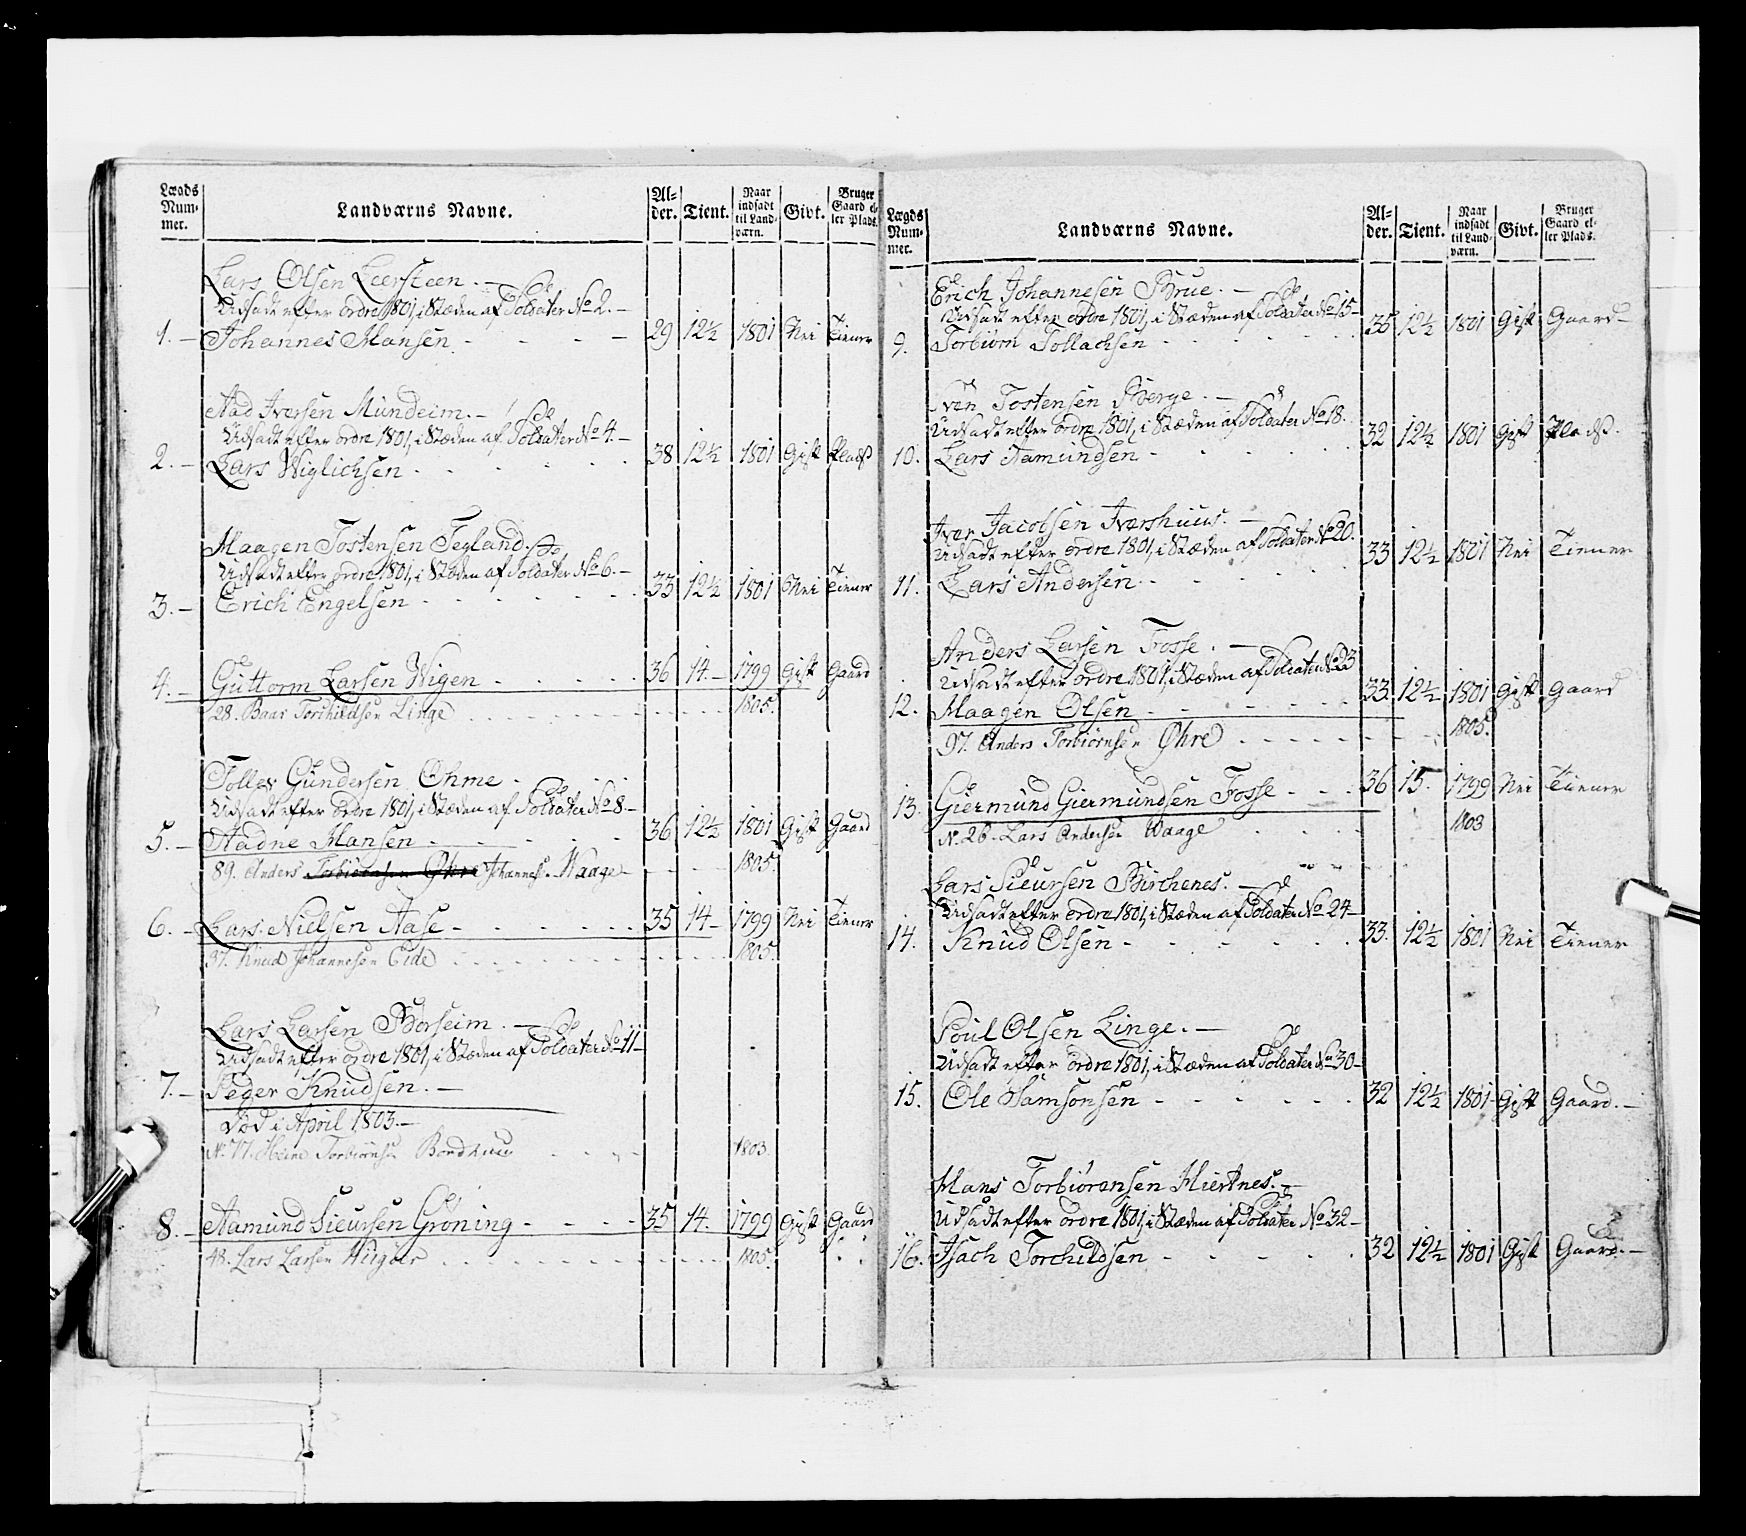 Lægds Nummer. Landværns Navne. Alder. Tient. Naar indsadt til Landværn. Givt. Bruger Gaard eller Plads.
Lars Olsen Leersteen. —
Udsadt efter ordre 1801, i Stæden af Soldater No 2. —
1. — Johannes Hansen - - - 29 12½ 1801 Nei Tiener
Aad Iversen Mundeim. —
Udsadt efter ordre 1801, i Stæden af Soldater No 4. —
2. — Lars Wiglichsen - - - 38 12½ 1801 Gift Plads
Haagen Tostensen Teyland.
Udsadt efter ordre 1801, i Stæden af Soldater No 6. —
3. — Erich Engelsen - - - 33 12½ 1801 Nei Tiener
4. — Guttorm Larsen Wigen - - - 36 14. — 1799 Gift Gaard
28. Baar Torchildsen Linge - - - 1805.
Tollev Gundersen Ohme -
Udsadt efter ordre 1801, i Stæden af Soldater No 8. —
5. — Aadne Hansen - - - 36 12½ 1801 Gift Gaard
89. Anders Torbiörnsen Øhre Johannes. Waage - - - 1805.
6. — Lars Nielsen Aase - - - 35 14 — 1799 Nei Tiener
37. Knud Johannesen Eide - - - 1805.
Lars LarsenBorseim. —
Udsadt efter ordre 1801, i Stæden af Soldater No 11 —
7. — Peder Knudsen. —
Död i April 1803. —
No 77. Heine Torbiörnsen - - - 1803.
8. — Aamund Sieursen Gröning - - - 35 14. 1799 Gift Gaard
48. Lars Larsen - - - 1805.
Lægds Nummer. Landværns Navne. Alder. Tient. Naar indsadt til Landværn. Givt. Bruger Gaard eller Plads.
Erich Johannesen Brue. —
Udsadt efter ordre 1801, i Stæden af Soldater No 15 —
9. Torbiörn Tollachsen - - - 35 12½ 1801 Gift Gaard —
Sven Tostensen Berge. —
Udsadt efter ordre 1801, i Stæden af Soldater No 18.
10. Lars Aamundsen - - - 32 12½ 1801 Gift Plads.
Iver Jacobsen Ivershuus. —
Udsadt efter ordre 1801, i Stæden af Soldater No 20.
11. Lars Andersen - - - 33 12½ 1801 Nei Tiener
Anders Larsen Fosse. —
Udsadt efter ordre 1801, i Stæden af Soldater No 23
12. Haagen Olsen - - - 33 12½ 1801 Gift Gaard
97. Anders Torbiörnsen Øhre - - - 1805.
13. Giermund Giermundsen Fosse - - - 36 15. 1799 Nei Tiener
No. 26. Lars Andersen Waage - - - 1803
Lars Sieursen Birchenes. —
Udsadt efter ordre 1801, i Stæden af Soldater No 24 —
14. Knud Olsen - - - 33. 12½ 1801 Nei Tiener
Poul Olsen Linge. —
Udsadt efter ordre 1801, i Stæden af Soldater No 30 —
15. Ole Samsonsen - - - 32 12½ 1801 Gift Gaard. —
Hans Torbiörensen Hiertnes. —
Udsadt efter ordre 1801, i Stæden af Soldater No 32 —
16. Isach Torchildsen - - - 32 12½ 1801 Gift Gaard. —